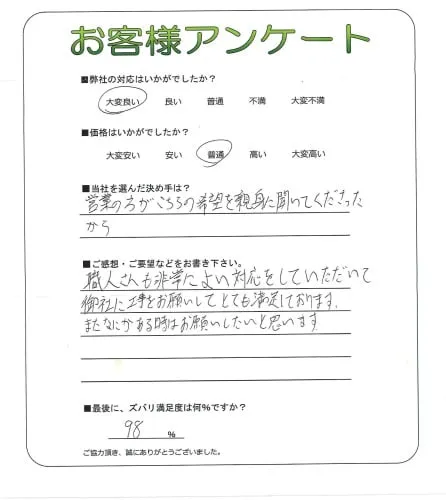 お客様アンケート
■弊社の対応はいかがでしたか?
大変良い 良い 普通 不満 大変不満
■価格はいかがでしたか?
大変安い 安い 普通 高い 大変高い
■当社を選んだ決め手は?
営業の方がこちらの希望を親身に聞いてくださった
から
■ご感想・ご要望などをお書き下さい。
職人さんも非常によい対応をしていただいて
御社に工事をお願いしてとても満足しております。
またなにかある時はお願いしたいと思います
■最後に、ズバリ満足度は何%ですか?
98 %
ご協力頂き、誠にありがとうございました。